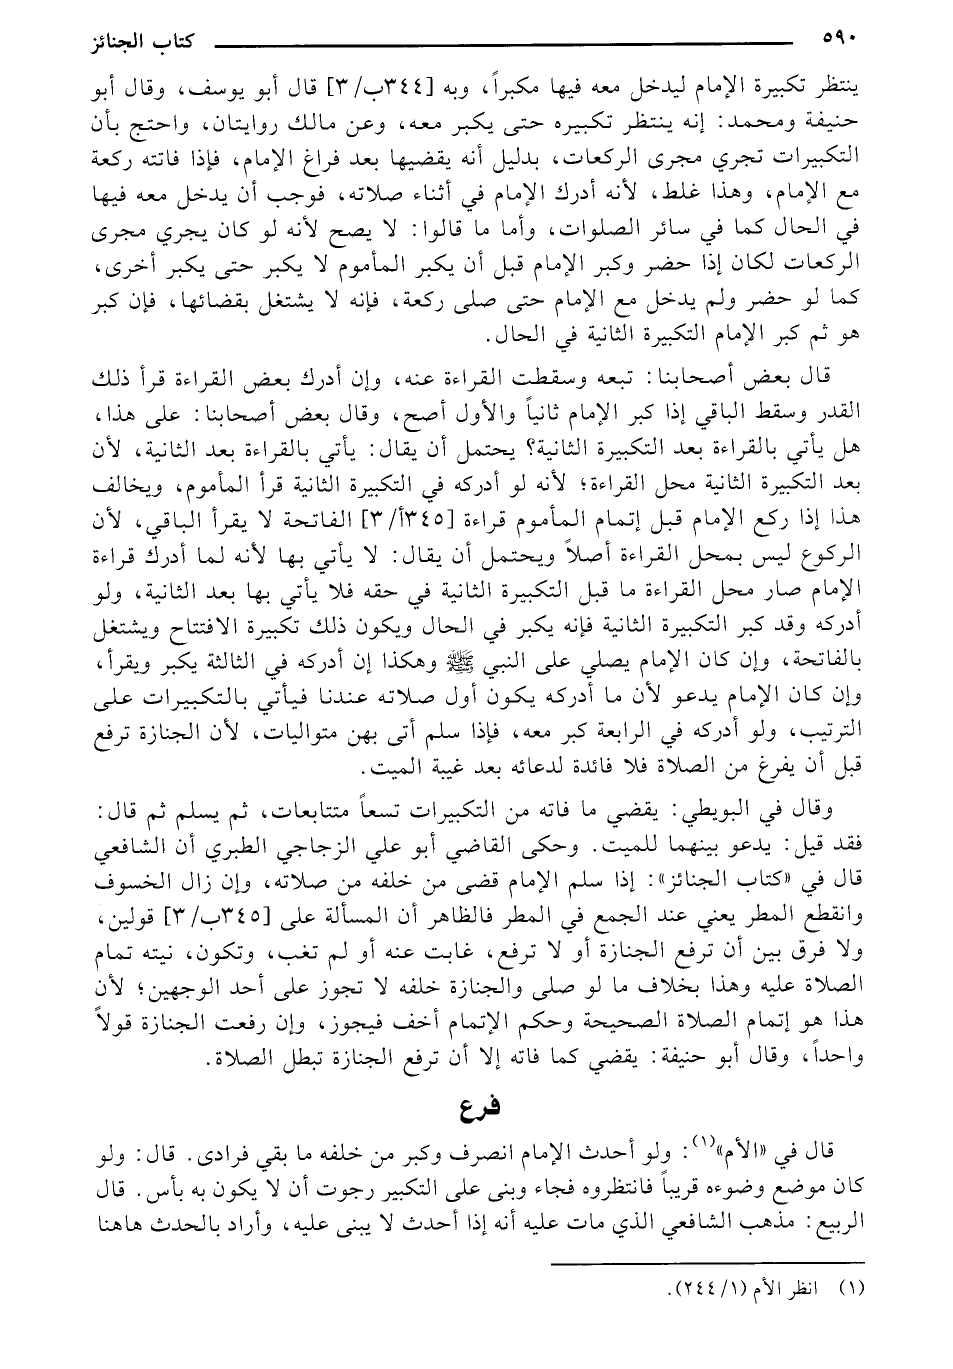 ٥٩٠ كتاب الجنائز
ينتظر تكبيرة الإمام ليدخل معه فيها مكبراً، وبه [٣٤٤ب/ ٣] قال أبو يوسف، وقال أبو
حنيفة ومحمد: إنه ينتظر تكبيره حتى يكبر معه، وعن مالك روايتان، واحتج بأن
التكبيرات تجري مجرى الركعات، بدليل أنه يقضيها بعد فراغ الإمام، فإذا فاتته ركعة
مع الإمام، وهذا غلط، لأنه أدرك الإمام في أثناء صلاته، فوجب أن يدخل معه فيها
في الحال كما في سائر الصلوات، وأما ما قالوا: لا يصح لأنه لو كان يجري مجرى
الركعات لكان إذا حضر وكبر الإمام قبل أن يكبر المأموم لا يكبر حتى يكبر أخرى،
كما لو حضر ولم يدخل مع الإمام حتى صلى ركعة، فإنه لا يشتغل بقضائها، فإن كبر
هو ثم كبر الإمام التكبيرة الثانية في الحال.
قال بعض أصحابنا: تبعه وسقطت القراءة عنه، وإن أدرك بعض القراءة قرأ ذلك
القدر وسقط الباقي إذا كبر الإمام ثانياً والأول أصح، وقال بعض أصحابنا: على هذا،
هل يأتي بالقراءة بعد التكبيرة الثانية؟ يحتمل أن يقال: يأتي بالقراءة بعد الثانية، لأن
بعد التكبيرة الثانية محل القراءة؛ لأنه لو أدركه في التكبيرة الثانية قرأ المأموم، ويخالف
هذا إذا ركع الإمام قبل إتمام المأموم قراءة [٣٤٥أ/ ٣] الفاتحة لا يقرأ الباقي، لأن
الركوع ليس بمحل القراءة أصلاً ويحتمل أن يقال: لا يأتي بها لأنه لما أدرك قراءة
الإمام صار محل القراءة ما قبل التكبيرة الثانية في حقه فلا يأتي بها بعد الثانية، ولو
أدركه وقد كبر التكبيرة الثانية فإنه يكبر في الحال ويكون ذلك تكبيرة الافتتاح ويشتغل
بالفاتحة، وإن كان الإمام يصلي على النبي ﷺ وهكذا إن أدركه في الثالثة يكبر ويقرأ،
وإن كان الإمام يدعو لأن ما أدركه يكون أول صلاته عندنا فيأتي بالتكبيرات على
الترتيب، ولو أدركه في الرابعة كبر معه، فإذا سلم أتى بهن متواليات، لأن الجنازة ترفع
قبل أن يفرغ من الصلاة فلا فائدة لدعائه بعد غيبة الميت.
وقال في البويطي: يقضي ما فاته من التكبيرات تسعاً متتابعات، ثم يسلم ثم قال:
فقد قيل: يدعو بينهما للميت. وحكى القاضي أبو علي الزجاجي الطبري أن الشافعي
قال في «كتاب الجنائز»: إذا سلم الإمام قضى من خلفه من صلاته، وإن زال الخسوف
وانقطع المطر يعني عند الجمع في المطر فالظاهر أن المسألة على [٣٤٥ب/ ٣] قولين،
ولا فرق بين أن ترفع الجنازة أو لا ترفع، غابت عنه أو لم تغب، وتكون، نيته تمام
الصلاة عليه وهذا بخلاف ما لو صلى والجنازة خلفه لا تجوز على أحد الوجهين؛ لأن
هذا هو إتمام الصلاة الصحيحة وحكم الإتمام أخف فيجوز، وإن رفعت الجنازة قولاً
واحداً، وقال أبو حنيفة: يقضي كما فاته إلا أن ترفع الجنازة تبطل الصلاة.
فرع
قال في «الأم»(١): ولو أحدث الإمام انصرف وكبر من خلفه ما بقي فرادى. قال: ولو
كان موضع وضوءه قريباً فانتظروه فجاء وبنى على التكبير رجوت أن لا يكون به بأس. قال
الربيع: مذهب الشافعي الذي مات عليه أنه إذا أحدث لا يبنى عليه، وأراد بالحدث هاهنا
(١) انظر الأم (١/ ٢٤٤).